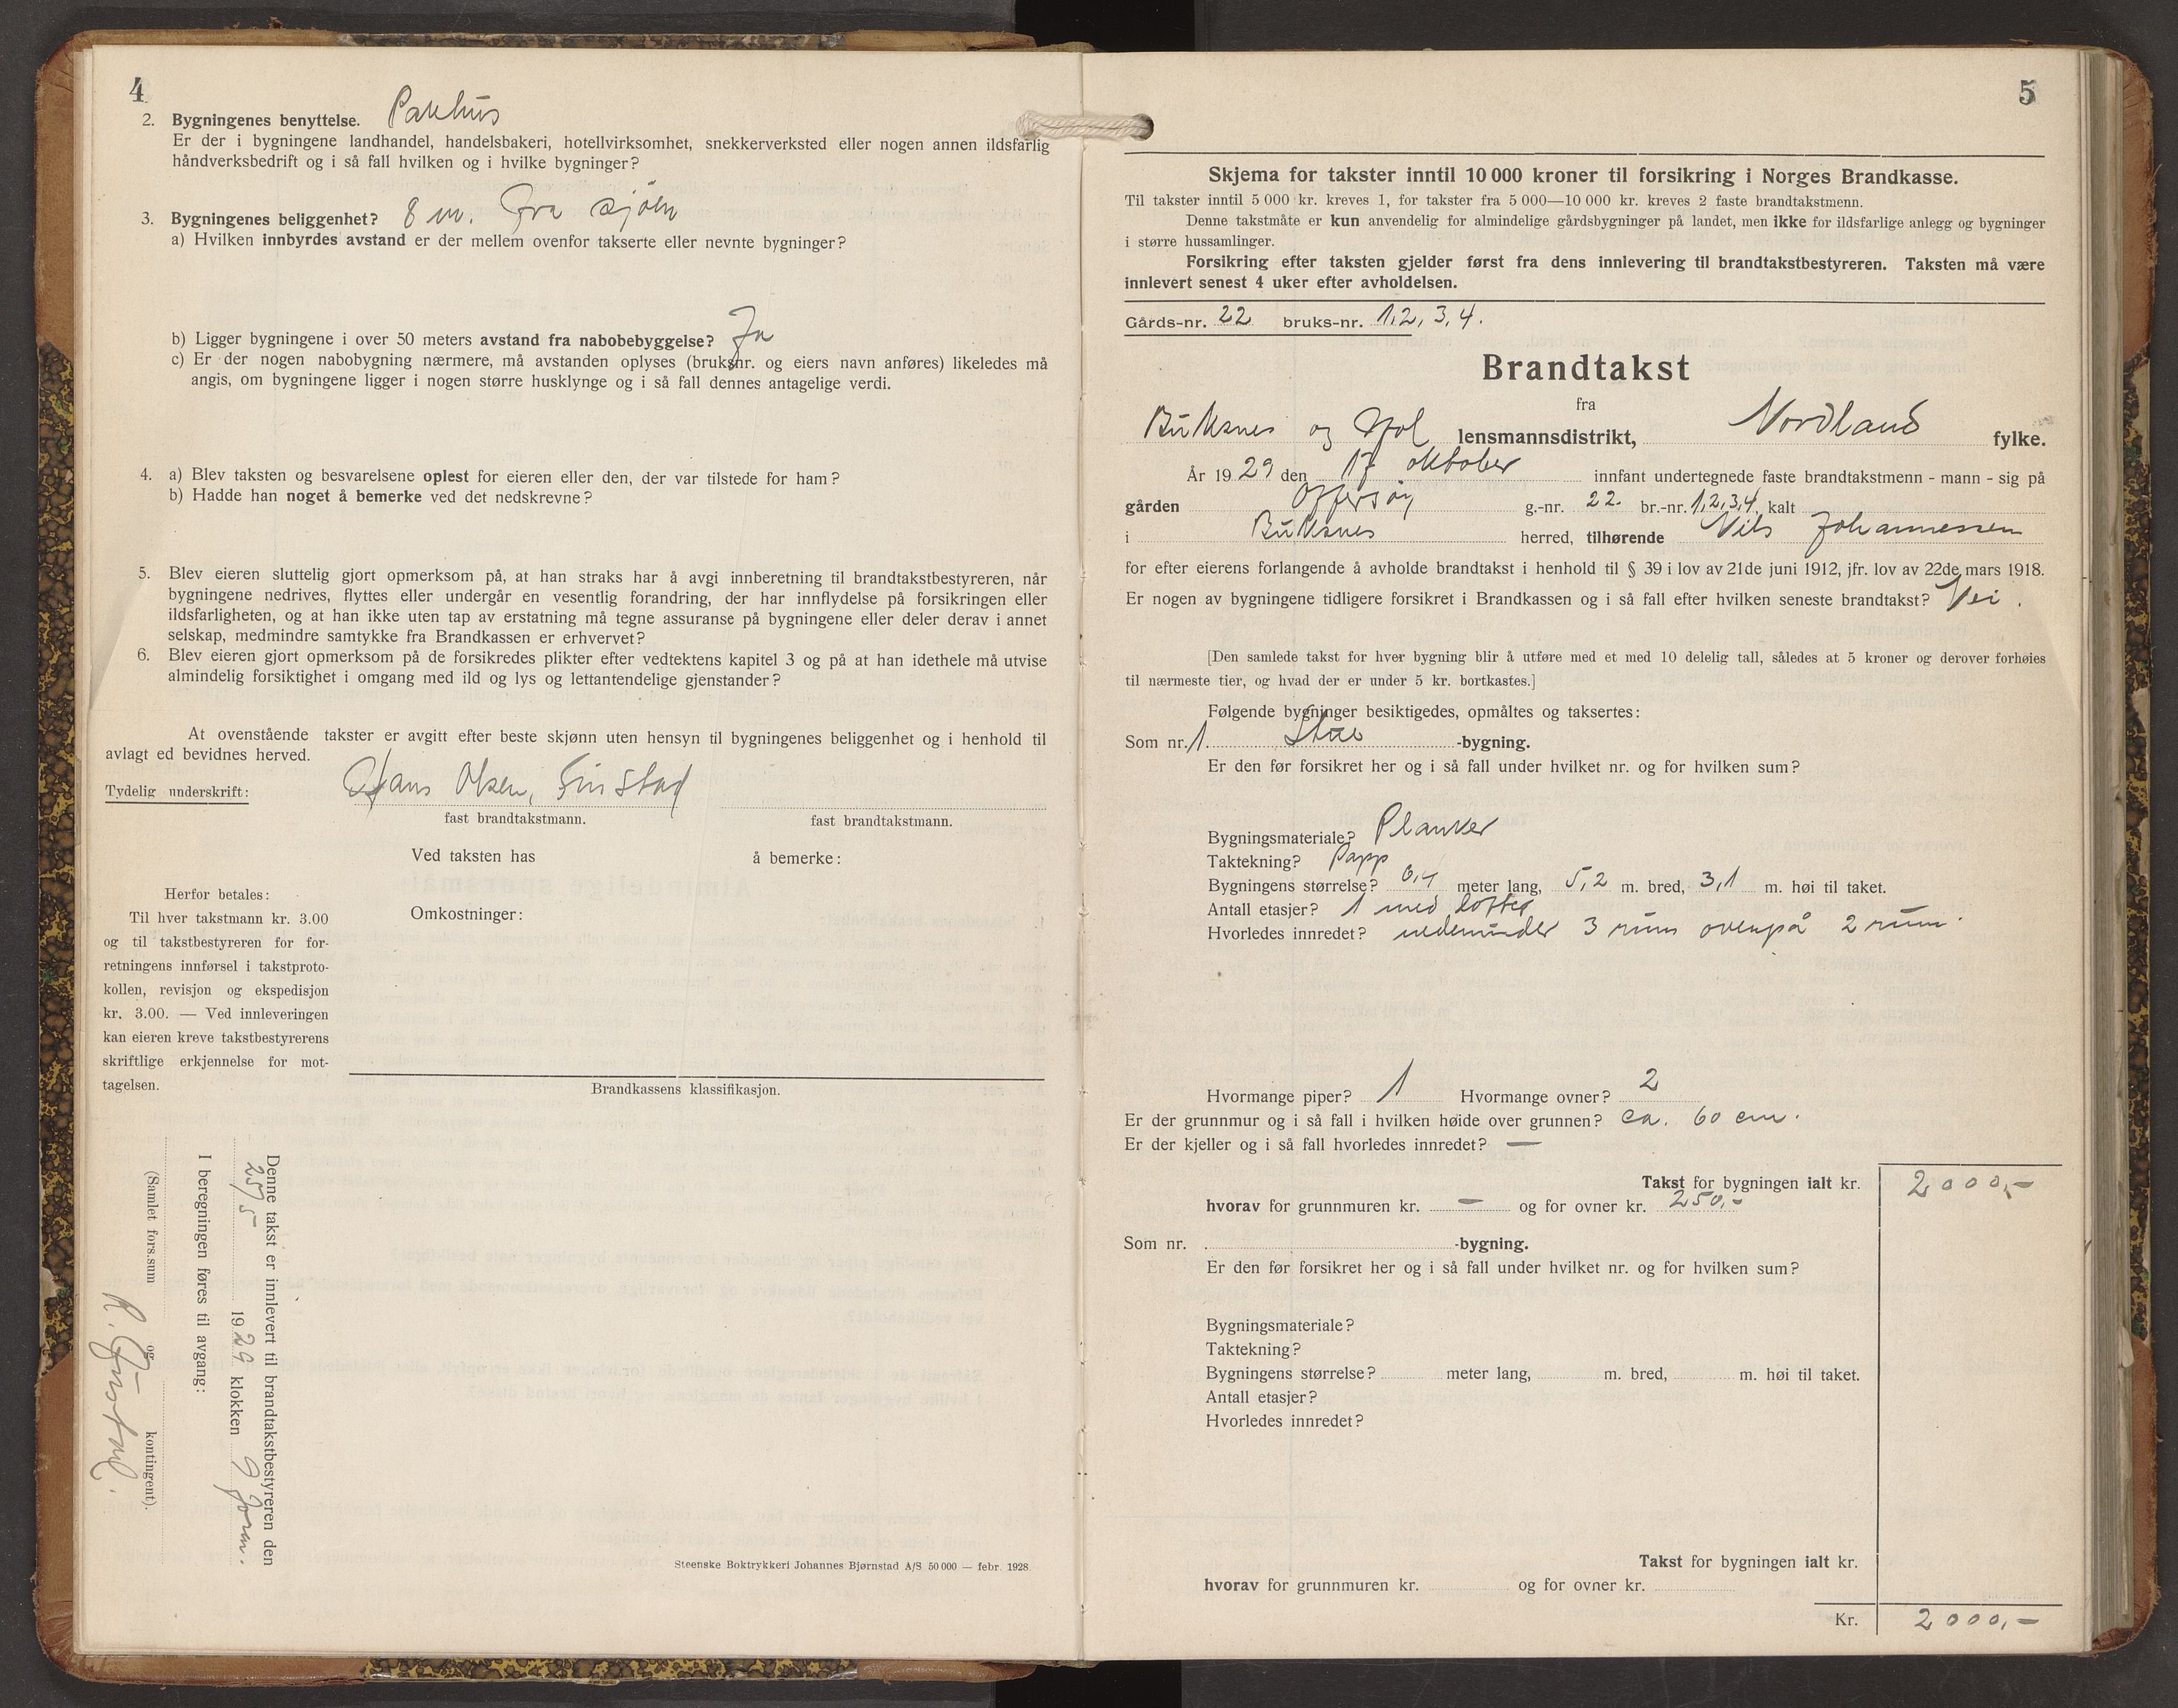 4
2. Bygningenes benyttelse. Pakhus
Er der i bygningene landhandel, handelsbakeri, hotellvirksomhet, snekkerverksted eller nogen annen ildsfarlig
håndverksbedrift og i så fall hvilken og i hvilke bygninger?
3. Bygningenes beliggenhet? 8 m. fra sjøen
a) Hvilken innbyrdes avstand er der mellem ovenfor takserte eller nevnte bygninger?
b) Ligger bygningene i over 50 meters avstand fra nabobebyggelse? Ja
c) Er der nogen nabobygning nærmere, må avstanden oplyses (bruksnr. og eiers navn anføres) likeledes må
angis, om bygningene ligger i nogen større husklynge og i så fall dennes antagelige verdi.
4. a) Blev taksten og besvarelsene oplest for eieren eller den, der var tilstede for ham?
b) Hadde han noget å bemerke ved det nedskrevne?
5. Blev eieren sluttelig gjort opmerksom på, at han straks har å avgi innberetning til brandtakstbestyreren, når
bygningene nedrives, flyttes eller undergår en vesentlig forandring, der har innflydelse på forsikringen eller
ildsfarligheten, og at han ikke uten tap av erstatning må tegne assuranse på bygningene eller deler derav i annet
selskap, medmindre samtykke fra Brandkassen er erhvervet?
6. Blev eieren gjort opmerksom på de forsikredes plikter efter vedtektens kapitel 3 og på at han idethele må utvise
almindelig forsiktighet i omgang med ild og lys og lettantendelige gjenstander?
At ovenstående takster er avgitt efter beste skjønn uten hensyn til bygningenes beliggenhet og i henhold til
avlagt ed bevidnes herved.
Tydelig underskrift: Hans Olsen, Finstad
fast brandtakstmann. fast brandtakstmann.
Ved taksten has å bemerke:
Herfor betales:
Til hver takstmann kr. 3.00
og til takstbestyreren for for-
retningens innførsel i takstproto-
kollen, revisjon og ekspedisjon
kr. 3.00. — Ved innleveringen
kan eieren kreve takstbestyrerens
skriftlige erkjennelse for mot-
tagelsen.
Omkostninger:
Brandkassens klassifikasjon.
Denne takst er innlevert til brandtakstbestyreren den
25/5 1929 klokken 9 form.
I beregningen føres til avgang:
(Samlet fors.sum og kontingent).
Steenske Boktrykkeri Johannes Bjørnstad A/S 50 000 — febr. 1928.
5
Skjema for takster inntil 10 000 kroner til forsikring i Norges Brandkasse.
Til takster inntil 5 000 kr. kreves 1, for takster fra 5 000—10 000 kr. kreves 2 faste brandtakstmenn.
Denne takstmåte er kun anvendelig for almindelige gårdsbygninger på landet, men ikke for ildsfarlige anlegg og bygninger
i større hussamlinger.
Forsikring efter taksten gjelder først fra dens innlevering til brandtakstbestyreren. Taksten må være
innlevert senest 4 uker efter avholdelsen.
Gårds-nr. 22 bruks-nr. 1,2,3,4.
Brandtakst
fra
Buksnes og Hol lensmannsdistrikt, Nordland fylke.
År 1929 den 17 oktober innfant undertegnede faste brandtakstmenn - mann - sig på
gården Offersøy g.-nr. 22. br.-nr. 1,2,3,4, kalt
i Buksnes herred, tilhørende Nils Johannessen
for efter eierens forlangende å avholde brandtakst i henhold til § 39 i lov av 21de juni 1912, jfr. lov av 22de mars 1918.
Er nogen av bygningene tidligere forsikret i Brandkassen og i så fall efter hvilken seneste brandtakst? Nei.
[Den samlede takst for hver bygning blir å utføre med et med 10 delelig tall, således at 5 kroner og derover forhøies
til nærmeste tier, og hvad der er under 5 kr. bortkastes.]
Følgende bygninger besiktigedes, opmåltes og taksertes:
Som nr. 1. -bygning.
Er den før forsikret her og i så fall under hvilket nr. og for hvilken sum?
Bygningsmateriale? Planker
Taktekning? Papp
Bygningens størrelse? meter lang, 5,2 m. bred, 3,1 m. høi til taket.
Antall etasjer? 1 med loft
Hvorledes innredet? nedenunder 3 rum ovenpå 2 rum.
Hvormange piper? 1 Hvormange ovner? 2
Er der grunnmur og i så fall i hvilken høide over grunnen? ca. 60 cm.
Er der kjeller og i så fall hvorledes innredet? —
Takst for bygningen ialt kr. 2000,-
hvorav for grunnmuren kr. — og for ovner kr. 250,-
Som nr. -bygning.
Er den før forsikret her og i så fall under hvilket nr. og for hvilken sum?
Bygningsmateriale?
Taktekning?
Bygningens størrelse? meter lang, m. bred, m. høi til taket.
Antall etasjer?
Hvorledes innredet?
Takst for bygningen ialt kr.
hvorav for grunnmuren kr. og for ovner kr.
Kr. 2000,-